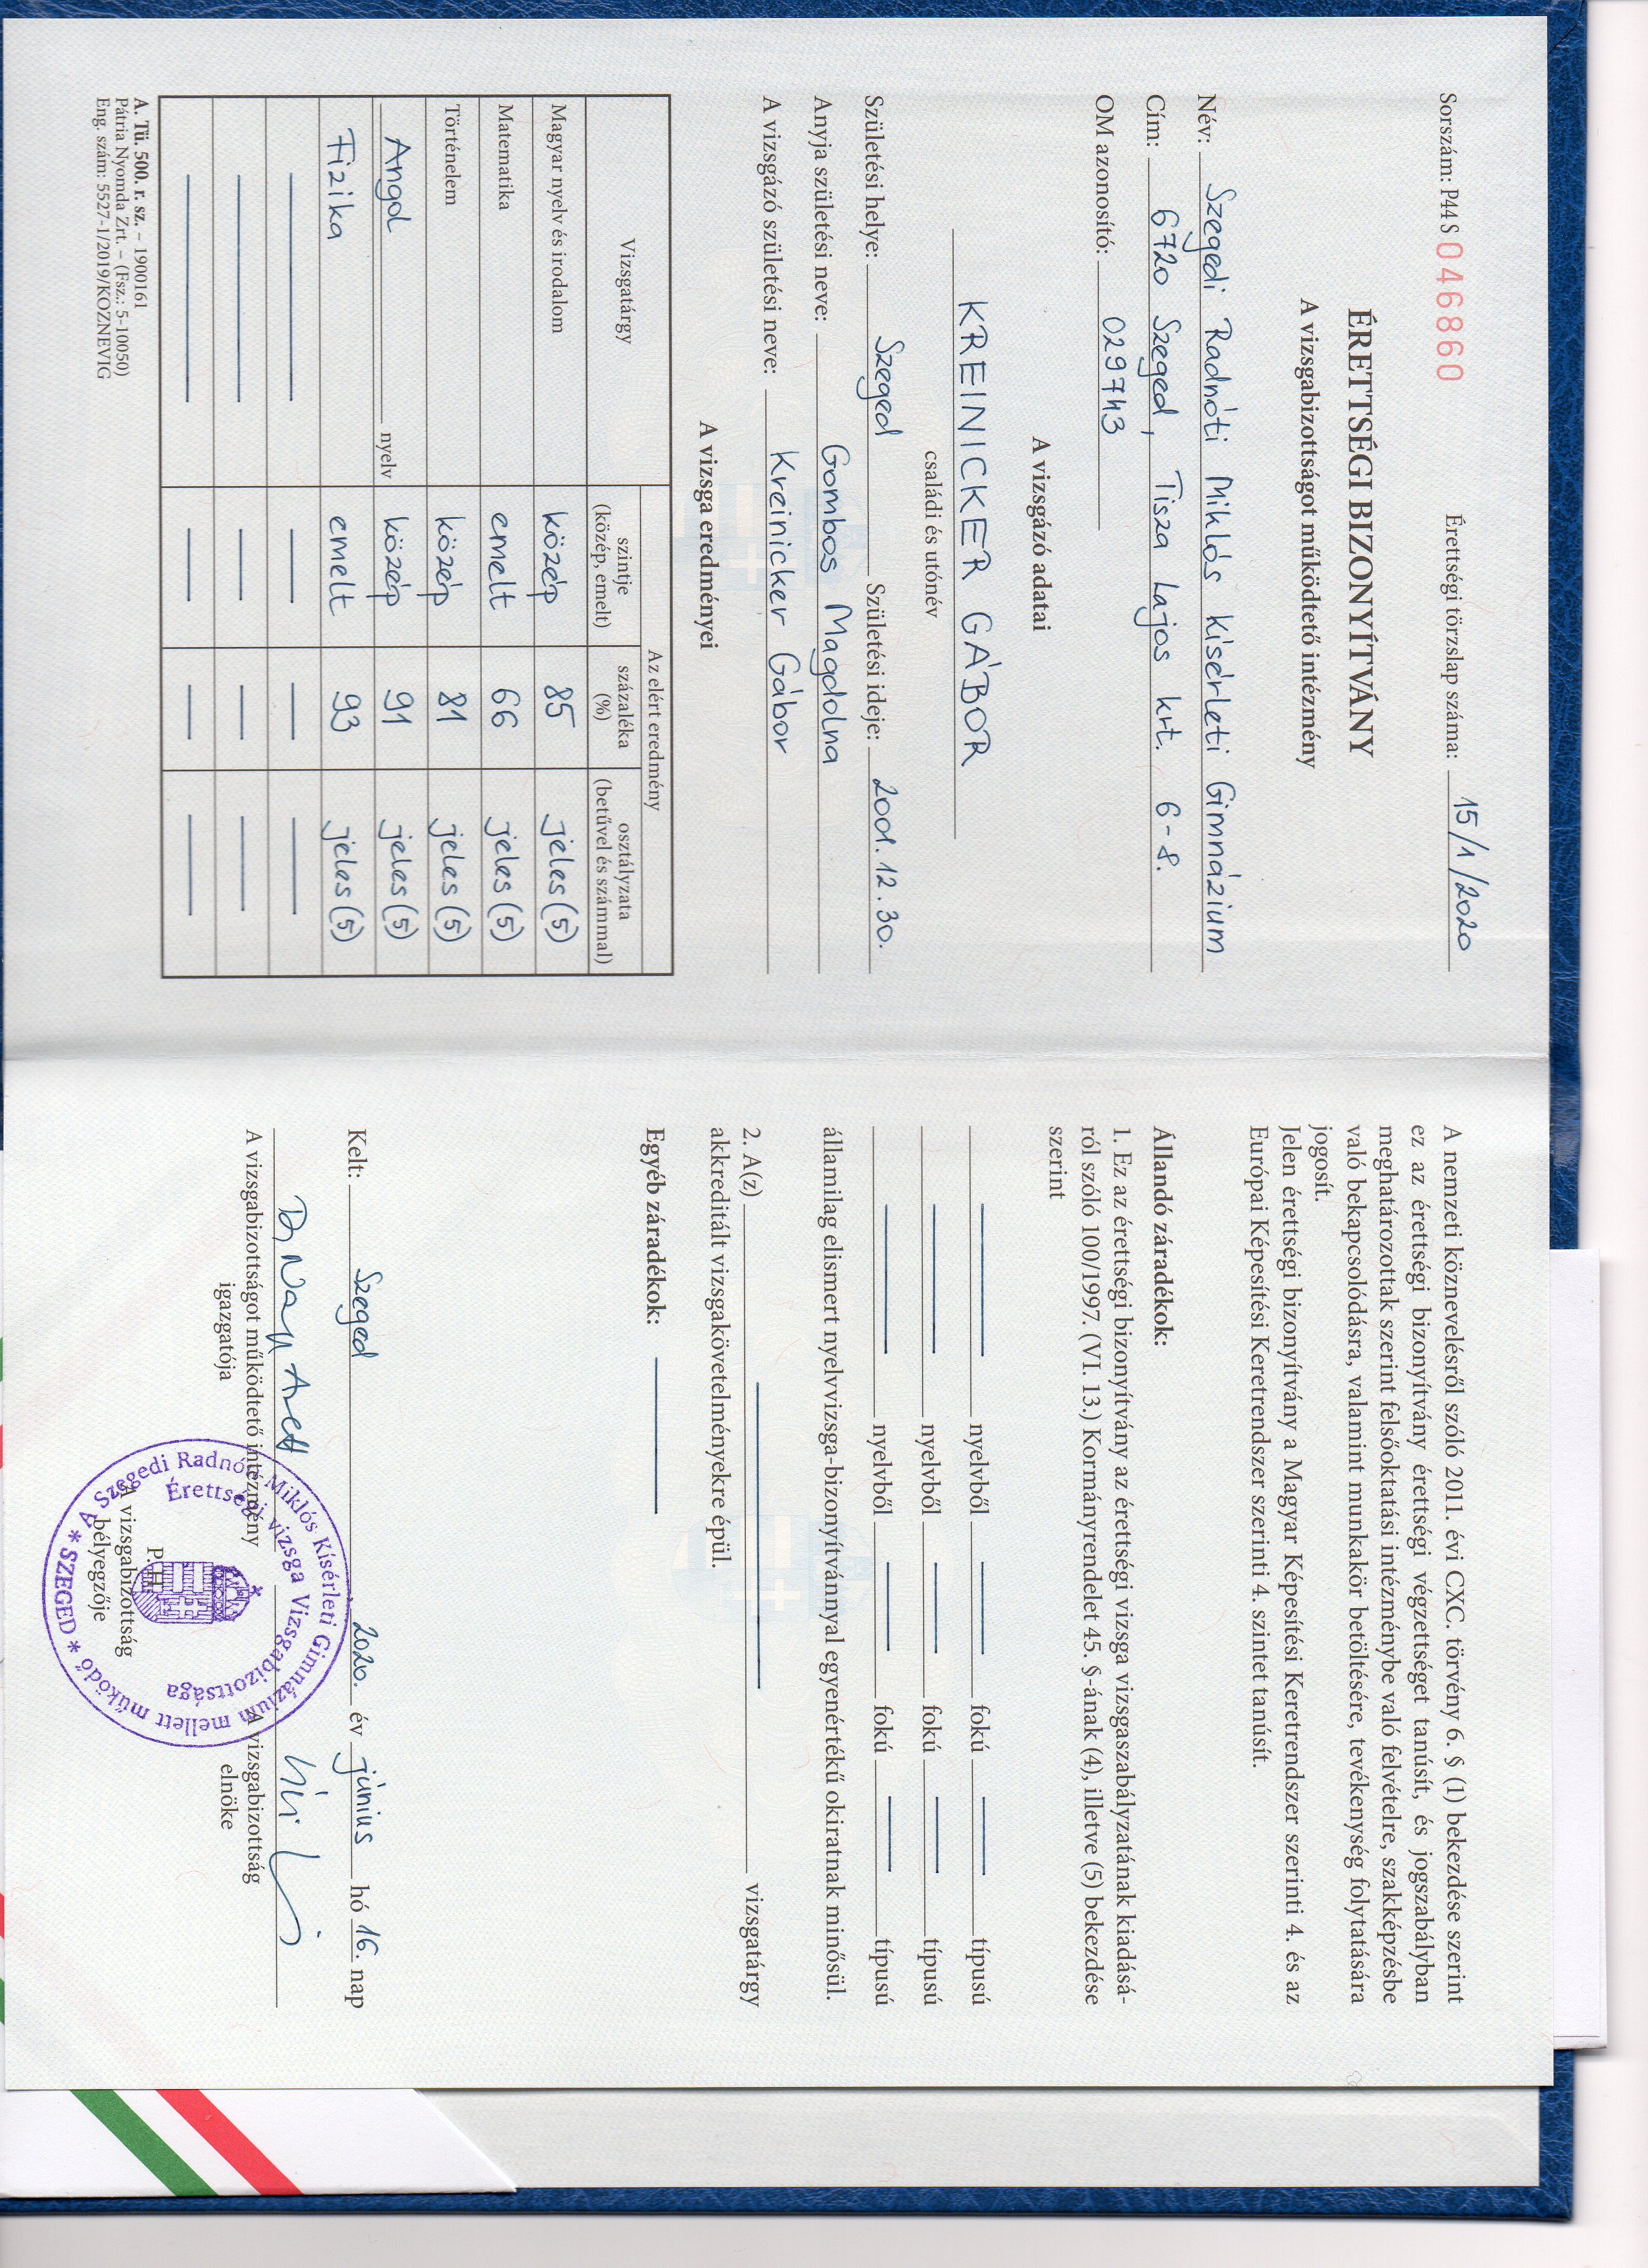 Sorszám: P44 S 046860 Érettségi törzslap száma: 15/1/2020
ÉRETTSÉGI BIZONYÍTVÁNY
A vizsgabizottságot működtető intézmény
Név: Szegedi Radnóti Miklós Kísérleti Gimnázium
Cím: 6720 Szeged, Tisza Lajos krt. 6-8.
OM azonosító: 029743
A vizsgázó adatai
KREINICKER GÁBOR
családi és utónév
Születési helye: Szeged Születési ideje: 2001. 12. 30.
Anyja születési neve: Gombos Magdolna
A vizsgázó születési neve: Kreinicker Gábor
A vizsga eredményei
Vizsgatárgy Az elért eredmény
szintje (közép, emelt) százaléka (%) osztályzata (betűvel és számmal)
Magyar nyelv és irodalom közép 85 jeles (5)
Matematika emelt 66 jeles (5)
Történelem közép 81 jeles (5)
Angol nyelv közép 91 jeles (5)
Fizika emelt 93 jeles (5)
A. Tü. 500. r. sz. – 1900161
Pátria Nyomda Zrt. – (Fsz.: 5-10050)
Eng. szám: 5527-1/2019/KOZNEVIG
A nemzeti köznevelésről szóló 2011. évi CXC. törvény 6. § (1) bekezdése szerint
ez az érettségi bizonyítvány érettségi végzettséget tanúsít, és jogszabályban
meghatározottak szerint felsőoktatási intézménybe való felvételre, szakképzésbe
való bekapcsolódásra, valamint munkakör betöltésére, tevékenység folytatására
jogosít.
Jelen érettségi bizonyítvány a Magyar Képesítési Keretrendszer szerinti 4. és az
Európai Képesítési Keretrendszer szerinti 4. szintet tanúsít.
Állandó záradékok:
1. Ez az érettségi bizonyítvány az érettségi vizsga vizsgaszabályzatának kiadásá-
ról szóló 100/1997. (VI. 13.) Kormányrendelet 45. §-ának (4), illetve (5) bekezdése
szerint
nyelvből fokú típusú
nyelvből fokú típusú
nyelvből fokú típusú
államilag elismert nyelvvizsga-bizonyítvánnyal egyenértékű okiratnak minősül.
2. A(z) vizsgatárgy
akkreditált vizsgakövetelményekre épül.
Egyéb záradékok:
Kelt: Szeged, 2020. év június hó 16. nap
A vizsgabizottságot működtető intézmény
igazgatója
A vizsgabizottság
elnöke
P.H.
A vizsgabizottság
bélyegzője
A Szegedi Radnóti Miklós Kísérleti Gimnázium mellett működő * SZEGED *
Érettségi vizsga Vizsgabizottsága